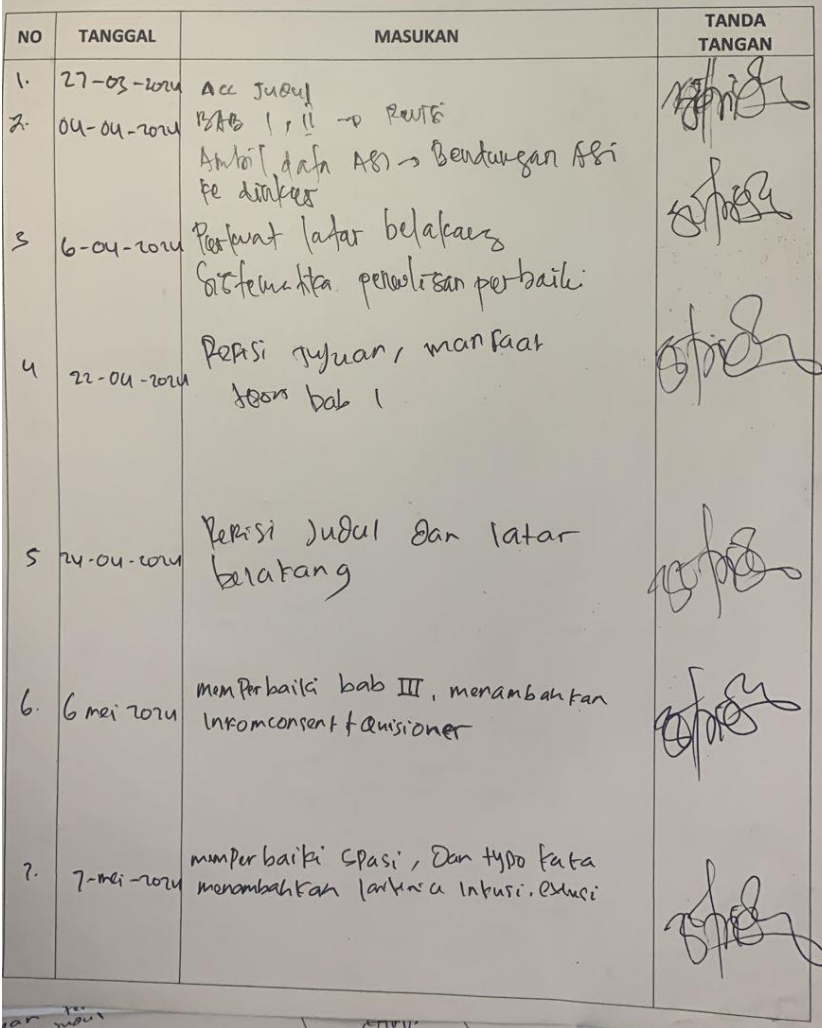 NO TANGGAL MASUKAN TANDA TANGAN
1. 27-03-2024 Acc Judul
2. 04-04-2024 BAB I, II → Revisi
Ambil data ASI → Bendungan ASI
ke dinkes
3 6-04-2024 Perkuat latar belakang
Sistematika penulisan perbaiki
4 22-04-2024 Revisi tujuan, manfaat
bab 1
5 24-04-2024 Revisi Judul dan latar
belakang
6. 6 mei 2024 memperbaiki bab III, menambahkan
Inkomconsent + Quisioner
7. 7-mei-2024 memperbaiki spasi, Dan typo kata
menambahkan